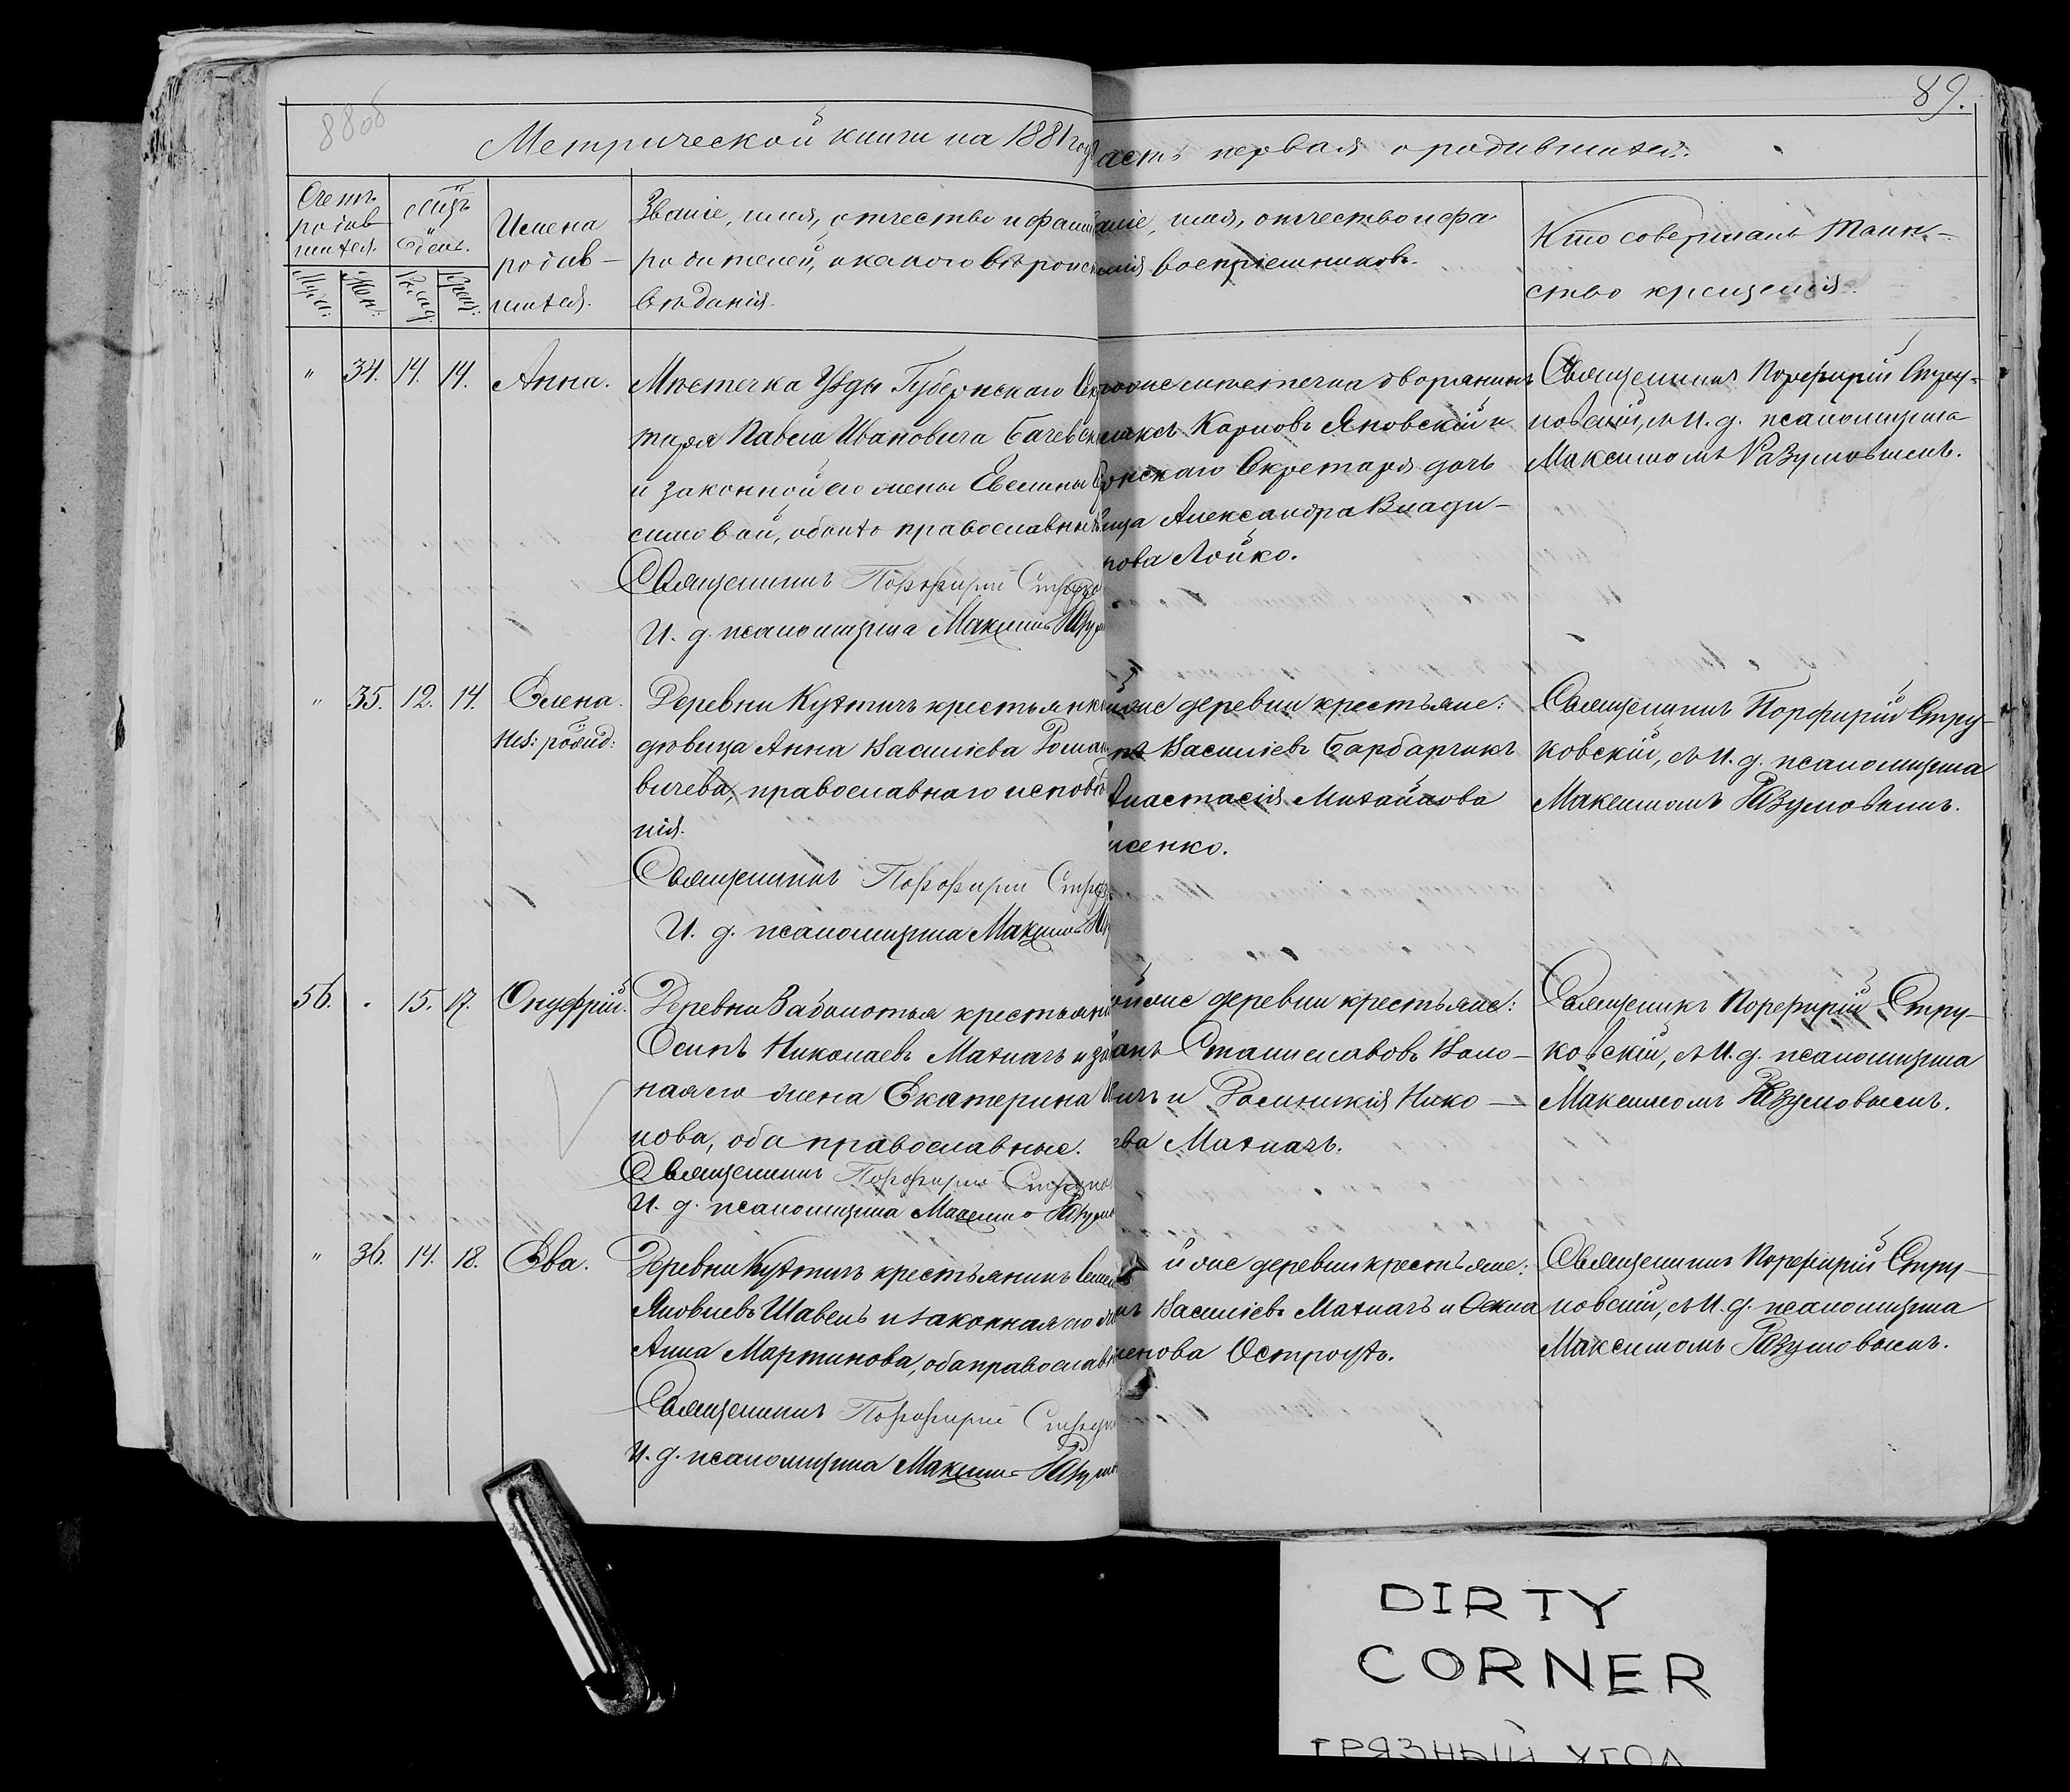 88об
89.
Метрической книги на 1881 год
асть первая о родившихся.
Счетъ родив-шихся.
Муж: Жен:
Мѣц. и день.
Рожд. Крещ:
Имена родив-шихся.
Званіе, имя, отчество и фами
родителей, и какого вѣроис
вѣданія.
аніе, имя, отчество и фа
милія воспріемниковъ.
Кто совершалъ Таин-
ство крещенія.
" 34. 14. 14. Анна.
Мѣстечка Узды Губернскаго Сек
таря Павла Ивановича
и законной его жены Евелины
симовой, обоихъ православныхъ
Священникъ Порфирій
И. д. псаломщика Максимъ
тогоже мѣстечка дворянинъ
Карловъ Яновскій и
рнскаго Секретаря дочь
ица Александра Влади-
рова Лойко.
Священникъ Порфирій Стру-
ковскій, съ И. д. псаломщика
Максимомъ Разумовичемъ.
" 35. 12. 14. Елена.
нез: рожд:
Деревни Кухтичъ крестьянк
дѣвица Анна Василіева Рома
вичева, православнаго исповѣ
нія.
Священникъ Порфирій
И. д. псаломщика Максимъ
тойже деревни крестьяне:
Василіевъ Барбарчикъ
Анастасія Михайлова
сенко.
Священникъ Порфирій Стру-
ковскій, съ И. д. псаломщика
Максимомъ Разумовичемъ.
56. " 15. 17. Онуфрій.
Деревни Заболотья крестьянин
Осипъ Николаевъ Махначъ и за
ная его жена Екатерина
нова, оба православные.
Священникъ Порфирій
И. д. псаломщика Максимъ
тойже деревни крестьяне:
Станиславовъ Коло-
ичъ и Нико-
ева Махначъ.
Священникъ Порфирій Стру-
ковскій, съ И. д. псаломщика
Максимомъ Разумовичемъ.
" 36. 14. 18. Ева.
Деревни Кухтичъ крестьянинъ Семе
Яковлевъ Шавель и законная его ж
Анна Мартинова, оба православн
Священникъ Порфирій
И. д. псаломщика Максимъ
йже деревни крестьяне:
Василіевъ Махначъ и
Остроухъ.
Священникъ Порфирій Стру-
ковскій, съ И. д. псаломщика
Максимомъ Разумовичемъ.
DIRTY
CORNER
ГРЯЗНЫЙ УГОЛ